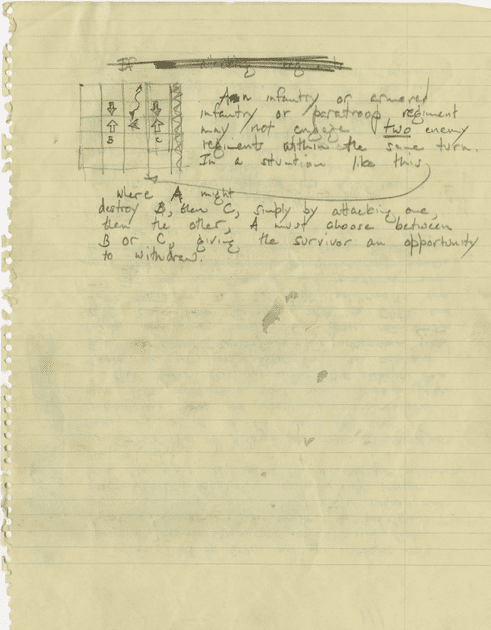 An infantry or armored
infantry or paratroop regiment
may not engage two enemy
regiments within the same turn.
In a situation like this,
B
C
where A might
destroy B, then C, simply by attacking one,
then the other, A must choose between
B or C, giving the survivor an opportunity
to withdraw.